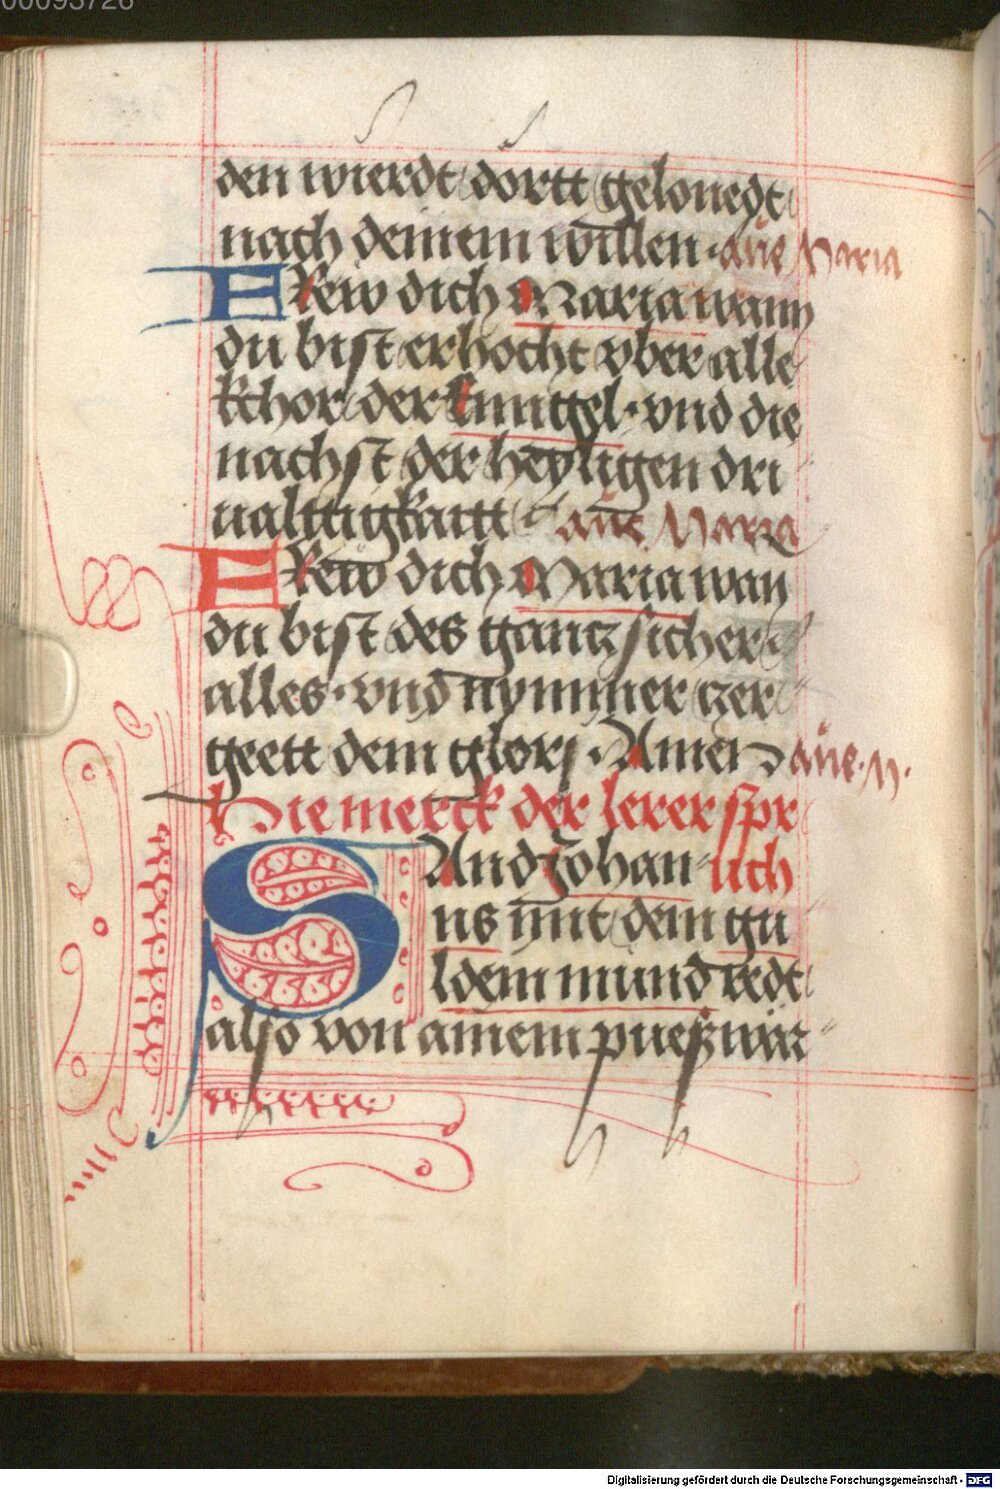 00093726
den wierdt dortt gelonegt
nach deinem willen · aue Maria
FRew dich Maria wann
du bist erhocht vber alle
kchor der Enngel · vnd die
nachst der heyligen dri
ualttigkaitt aue Maria
FRew dich Maria wan
du bist des gantz sicher
alles · vnd nymmer czer
geett dein glorj · Amen aue · M ·
Hie merck der lerer spr
SAnd Johan uch
ns mit dem gu
ldem mund redt
also von ainem puesz wir
Digitalisierung gefördert durch die Deutsche Forschungsgemeinschaft - DFG